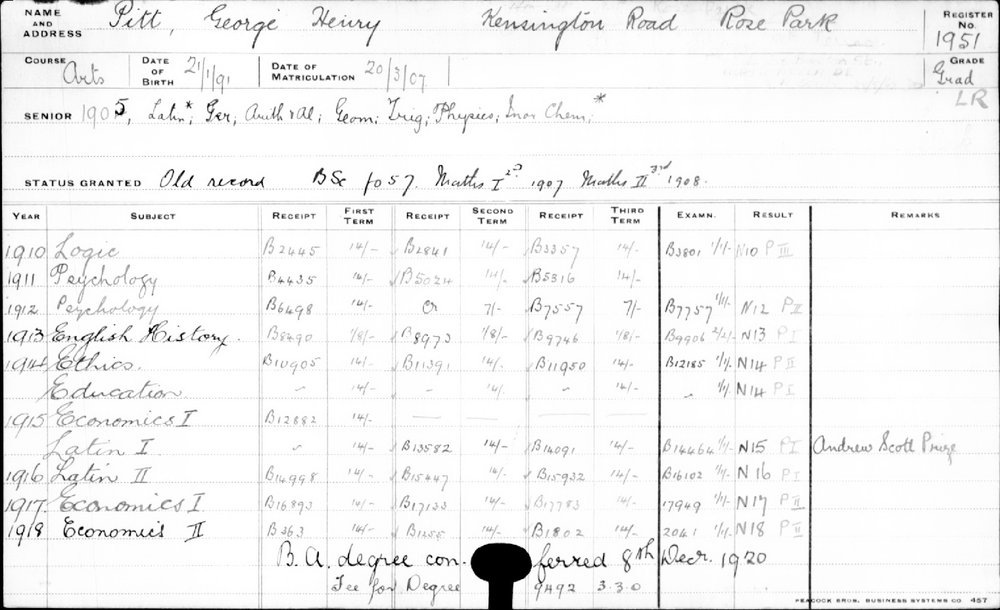 NAME AND ADDRESS Pitt, George Henry Kensington Road Rose Park REGISTER No. 1951
COURSE Arts DATE OF BIRTH 21/1/91 DATE OF MATRICULATION 20/3/07 GRADE Grad
LR
SENIOR 1905, Latin*; Ger; Arith & Al; Geom; Trig; Physics; Inor Chem;*
STATUS GRANTED Old record BSc fo 57. Maths I 2nd 1907 Maths II 3rd 1908.
YEAR SUBJECT RECEIPT FIRST TERM RECEIPT SECOND TERM RECEIPT THIRD TERM EXAMN. RESULT REMARKS
1910 Logic B2445 14/- B2841 14/- B3357 14/- B3801 1/1/- N10 P III
1911 Psychology B4435 14/- B5024 14/- B5316 14/-
1912 Psychology B6498 14/- Or 7/- B7557 7/- B7757 1/1/- N12 P II
1913 English History. B8490 1/8/- B8973 1/8/- B9746 1/8/- B9906 2/2/- N13 P I
1914 Ethics. B10905 14/- B11391 14/- B11950 14/- B12185 1/1/- N14 P II
Education " 14/- " 14/- " 14/- " 1/1/- N14 P I
1915 Economics I B12882 14/- — — — —
Latin I " 14/- B13582 14/- B14091 14/- B14464 1/1/- N15 P I Andrew Scott Prize
1916 Latin II B14998 14/- B15447 14/- B15932 14/- B16102 1/1/- N16 P I
1917 Economics I B16893 14/- B17133 14/- B17783 14/- 17949 1/1/- N17 P II
1918 Economics II B363 14/- B1255 14/- B1802 14/- 2041 1/1/- N18 P II
B.A. degree conferred 8th Decr. 1920
Fee for Degree 9492 3.3.0
PEACOCK BROS. BUSINESS SYSTEMS CO. 457